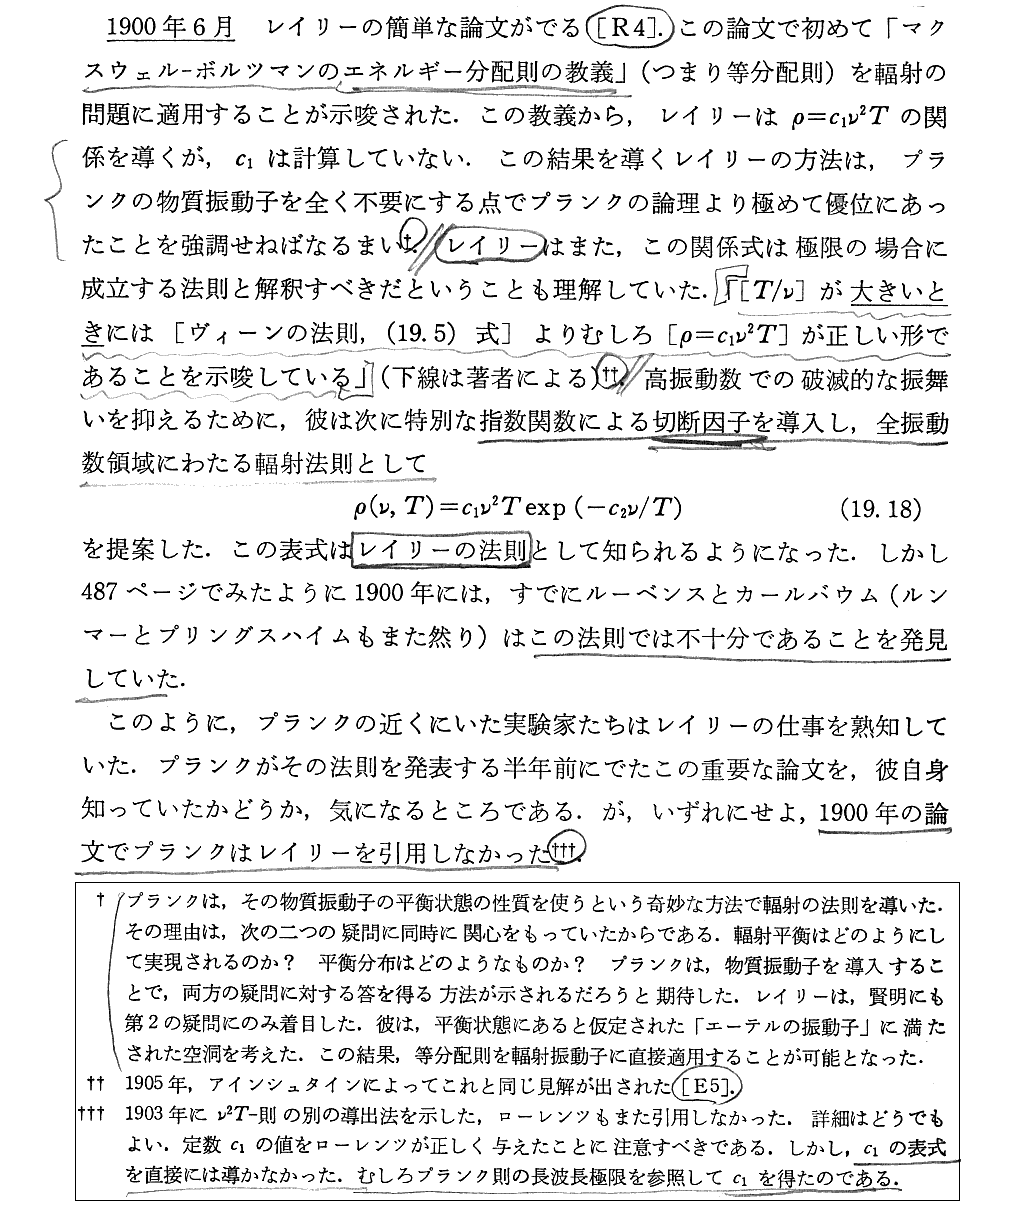 1900年6月 レイリーの簡単な論文がでる[R4]. この論文で初めて「マク
スウェル-ボルツマンのエネルギー分配則の教義」(つまり等分配則) を輻射の
問題に適用することが示唆された. この教義から, レイリーは ρ=c₁ν²T の関
係を導くが, c₁ は計算していない. この結果を導くレイリーの方法は, プラ
ンクの物質振動子を全く不要にする点でプランクの論理より極めて優位にあっ
たことを強調せねばなるまい†. レイリーはまた, この関係式は極限の場合に
成立する法則と解釈すべきだということも理解していた. 「[T/ν] が大きいと
きには [ヴィーンの法則, (19.5) 式] よりむしろ [ρ=c₁ν²T] が正しい形で
あることを示唆している」(下線は著者による)††. 高振動数での破滅的な振舞
いを抑えるために, 彼は次に特別な指数関数による切断因子を導入し, 全振動
数領域にわたる輻射法則として
ρ(ν, T)=c₁ν²T exp (−c₂ν/T) (19.18)
を提案した. この表式はレイリーの法則として知られるようになった. しかし
487ページでみたように1900年には, すでにルーベンスとカールバウム (ルン
マーとプリングスハイムもまた然り) はこの法則では不十分であることを発見
していた.
このように, プランクの近くにいた実験家たちはレイリーの仕事を熟知して
いた. プランクがその法則を発表する半年前にでたこの重要な論文を, 彼自身
知っていたかどうか, 気になるところである. が, いずれにせよ, 1900年の論
文でプランクはレイリーを引用しなかった†††.
† プランクは, その物質振動子の平衡状態の性質を使うという奇妙な方法で輻射の法則を導いた.
その理由は, 次の二つの疑問に同時に関心をもっていたからである. 輻射平衡はどのようにし
て実現されるのか? 平衡分布はどのようなものか? プランクは, 物質振動子を導入するこ
とで, 両方の疑問に対する答を得る方法が示されるだろうと期待した. レイリーは, 賢明にも
第2の疑問にのみ着目した. 彼は, 平衡状態にあると仮定された「エーテルの振動子」に満た
された空洞を考えた. この結果, 等分配則を輻射振動子に直接適用することが可能となった.
†† 1905年, アインシュタインによってこれと同じ見解が出された[E5].
††† 1903年に ν²T-則の別の導出法を示した, ローレンツもまた引用しなかった. 詳細はどうでも
よい. 定数 c₁ の値をローレンツが正しく与えたことに注意すべきである. しかし, c₁ の表式
を直接には導かなかった. むしろプランク則の長波長極限を参照して c₁ を得たのである.